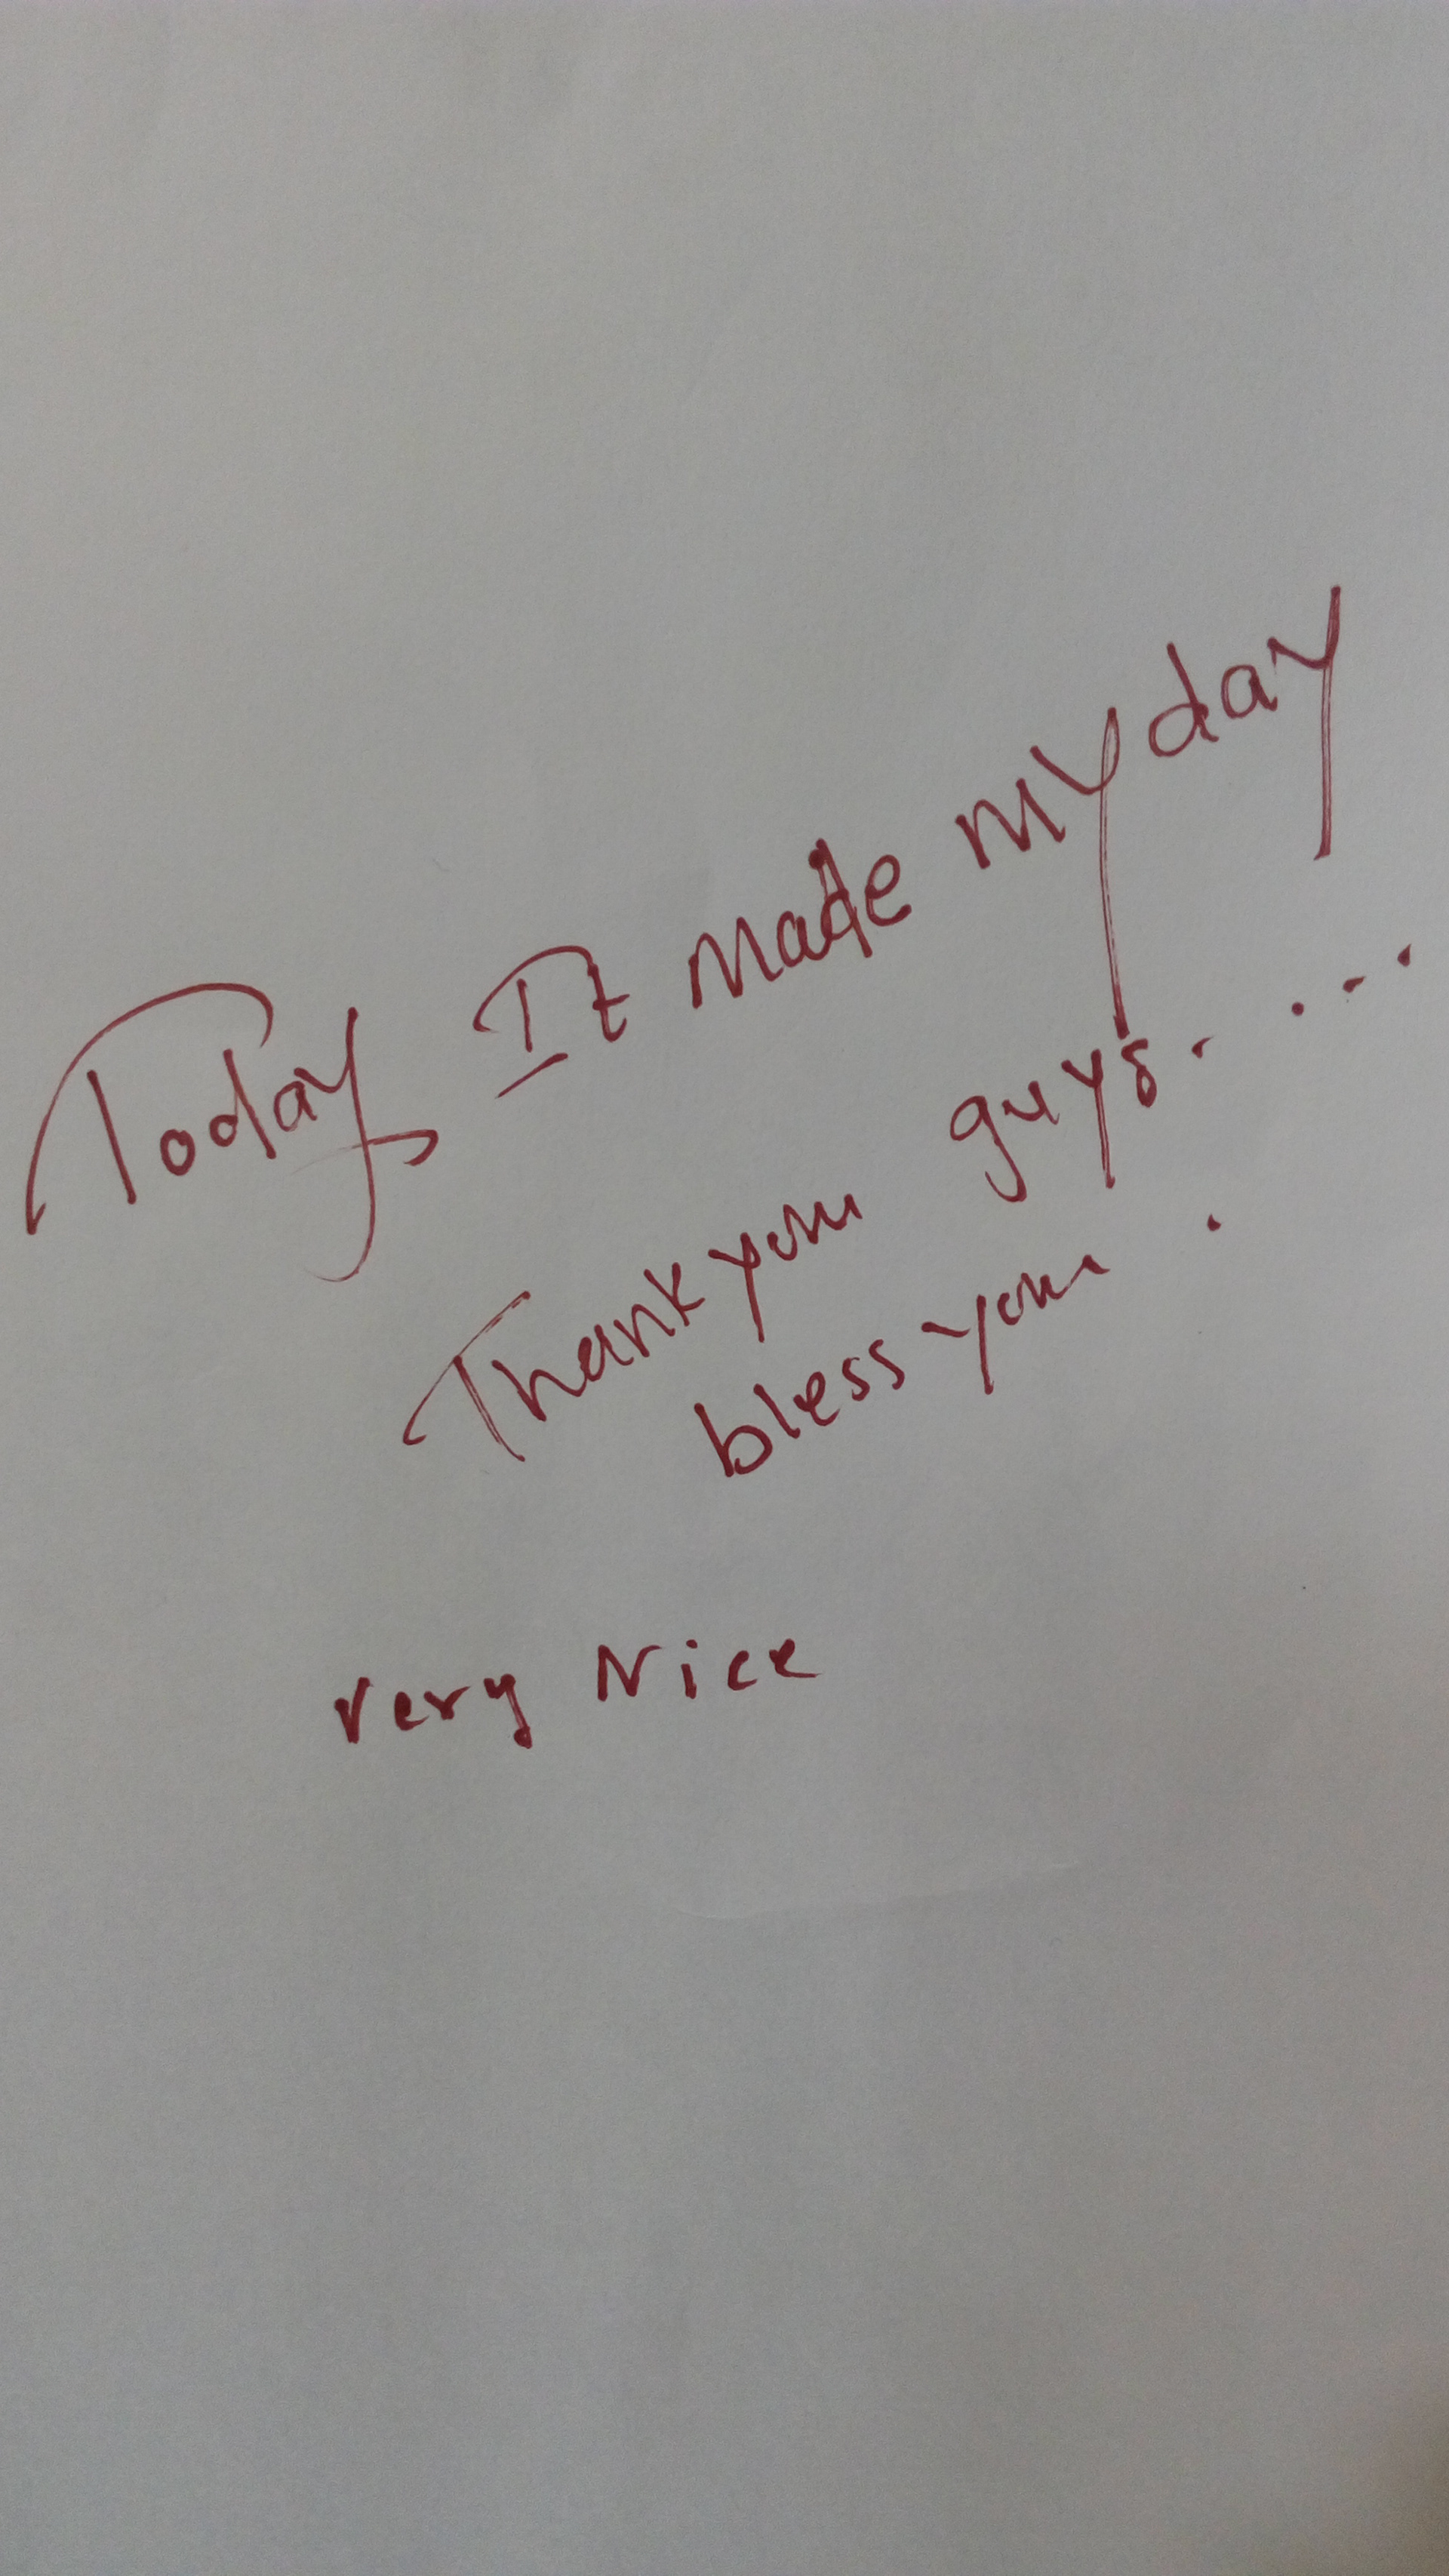 Today It made my day
Thank you guys. ...
bless you .
very Nice